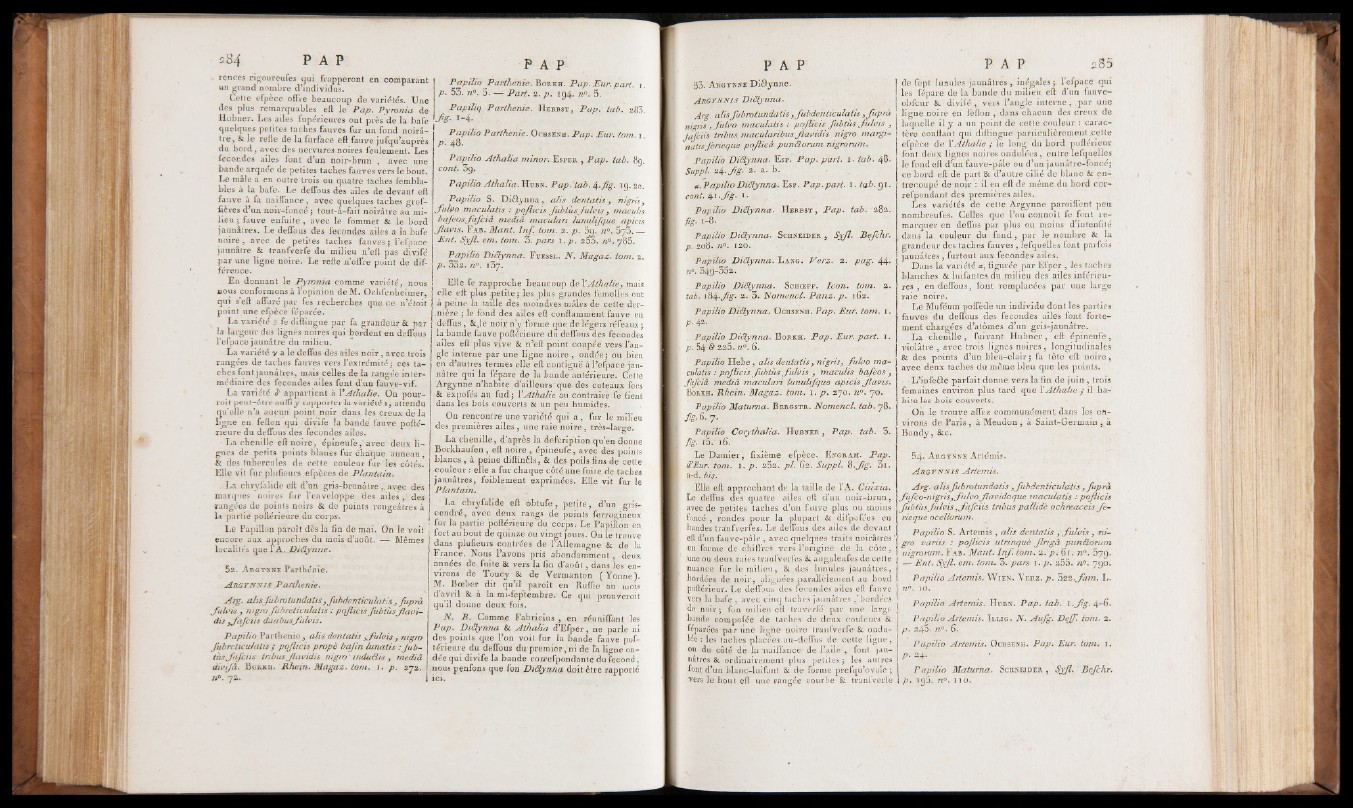 284 P A P
P A P
rences rigoureuses qui frapperont en comparant
un grand nombre d'individus.
Cette espèce offre beaucoup de variétés. Une
des plus remarquables est le Pap. Pyronia de
Hubner. Les ailes supérieures ont près de la base
quelques petites taches fauves sur un fond noirâ-
tre, & le reste de la surface est fauve jusqu'auprès
du bord, avec des nervures noires seulement. Les
secondes ailes sont d'un noir-brun, avec une
bande arquée de petites taches fauves vers le bout.
Le mâle a en outre trois ou quatre taches sembla-
bles à la base. Le dessous des ailes de devant est
fauve à sa naissance, avec quelques taches gros-
sières d'un noir-foncé; tout-à-fait noirâtre au mi-
lieu; fauve ensuite, avec le sommet & le bord
jaunâtres. Le dessous des secondes ailes a la base
noire, avec de petites taches fauves; l'espace
jaunâtre & transverse du milieu n'est pas divisé
par une ligne noire. Le reste n'offre point de dif-
férence.
En donnant le Pyronia comme variété, nous
nous conformons à l'opinion de M. Ochsenheimer,
qui s'est assuré par ses recherches que ce n'étoit
point une espèce séparée.
La variété β se distingue par sa grandeur & par
la largeur des lignes noires qui bordent en dessous
l'espace jaunâtre du milieu.
La variété γ a le dessus des ailes noir, avec trois
rangées de taches fauves vers l'extrémité; ces ta-
ches sont jaunâtres, mais celles de la rangée inter-
médiaire des secondes ailes sont d'un fauve-vif.
La variété δ appartient à l'Athalie. On pour-
roit peut-être aussi y rapporter la variété ε, attendu
qu'elle n'a aucun point noir dans les creux de la
ligne en feston qui divise la bande fauve posté-
rieure du dessous des secondes ailes.
La chenille est noire, épineuse, avec deux li-
gnes de petits points blancs sur chaque anneau,
& des tubercules de cette couleur sur les côtés.
Elle vit sur plusieurs espèces de Plantain.
La chrysalide est d'un gris-brunâtre, avec des
marques noires sur l'enveloppe des ailes, des
rangées de points noirs & de points rougeâtres à
la partie postérieure du corps.
Le Papillon paroît dès la fin de mai. On le voit
encore aux approches du mois d'août. — Mêmes
localités que l'A. Dictynne.
52. ARGYNNE Parthénie.
ARGYNNIS Parthenie.
Arg. alis subrotundatis, subdenticulatis, suprà
fulvis, nigro subreticulatis : posticis subtùs flavi-
dis, fasciis duabus fulvis.
Papilio Parthenie, alis dentatis, fulvis, nigro
subreticulatis; posticis propè basin lunatis : sub-
tùs fasciis tribus flavidis nigro inductis, mediâ
divisâ. BORKH. Rhein. Magaz. tom. 1. p. 272.
nº. 72.
Papilio Parthenie. BORKH. Pap. Eur. part. 1.
p. 53. nº. 5. — Part. 2. p. 194. nº. 5.
Papilio Parthenie. HERBST, Pap. tab. 283.
fig. 1-4.
Papilio Parthenie. OCHSENH. Pap. Eur. tom. 1.
p. 48.
Papilio Athalia minor. ESPER, Pap. tab. 89.
cont. 39.
Papilio Athalia. HUBN. Pap. tab. 4. fig. 19. 20.
Papilio S. Dictynna, alis dentatis, nigris,
fulvo maculatis : posticis subtùs fulvis, maculis
baseos, fasciâ mediâ maculari lunulisque apicis
flavis. FAB. Mant. Ins. tom. 2. p. 59. nº. 575. —
Ent. Syst. em. tom. 3. pars 1. p. 255. nº. 785.
Papilio Dictynna. FUESSL. N. Magaz. tom. 2.
p. 352. nº. 137.
Elle se rapproche beaucoup de l'Athalie, mais
elle est plus petite; les plus grandes femelles ont
à peine la taille des moindres mâles de cette der-
nière; le fond des ailes est constamment fauve en
dessus, & le noir n'y forme que de légers réseaux;
la bande fauve postérieure du dessous des secondes
ailes est plus vive & n'est point coupée vers l'an-
gle interne par une ligne noire, ondée; ou bien
en d'autres termes elle est contiguë à l'espace jau-
nâtre qui la sépare de la bande antérieure. Cette
Argynne n'habite d'ailleurs que des coteaux secs
& exposés au sud; l'Athalie au contraire se tient
dans les bois couverts & un peu humides.
On rencontre une variété qui a, sur le milieu
des premières ailes, une raie noire, très-large.
La chenille, d'après la description qu'en donne
Borkhausen, est noire, épineuse, avec des points
blancs, à peine distincts, & des poils fins de cette
couleur : elle a sur chaque côté une suite de taches
jaunâtres, foiblement exprimées. Elle vit sur le
Plantain.
La chrysalide est obtuse, petite, d'un gris-
cendré, avec deux rangs de points ferrugineux
sur la partie postérieure du corps. Le Papillon en
sort au bout de quinze ou vingt jours. On le trouve
dans plusieurs contrées de l'Allemagne & de la
France. Nous l'avons pris abondamment, deux
années de suite & vers la fin d'août, dans les en-
virons de Toucy & de Vermanton (Yonne).
M. Bœber dit qu'il paroît en Russie au mois
d'avril & à la mi-septembre. Ce qui prouveroit
qu'il donne deux fois.
N. B. Comme Fabricius, en réunissant les
Pap. Dictynna & Athalia d'Esper, ne parle ni
des points que l'on voit sur la bande fauve pos-
térieure du dessous du premier, ni de la ligne on-
dée qui divise la bande correspondante du second,
nous pensons que son Dictynna doit être rapporté
ici.
P A P
P A P 285
53. ARGYNNE Dictynne.
ARGYNNIS Dictynna.
Arg. alis subrotundatis, subdenticulatis, suprà
nigris, fulvo maculatis : posticis subtùs fulvis,
fasciis tribus macularibus flavidis nigro margi-
natis serieque posticâ punctorum nigrorum.
Papilio Dictynna. ESP. Pap. part. 1. tab. 48.
Suppl. 24. fig. 2. a. b.
α. Papilio Dictynna. ESP. Pap. part. 1. tab. 91.
cont. 41. fig. 1.
Papilio Dictynna. HERBST, Pap. tab. 282.
fig. 1-8.
Papilio Dictynna. SCHNEIDER, Syst. Beschr.
p. 208. nº. 120.
Papilio Dictynna. LANG. Verz. 2. pag. 44.
nº. 349-352.
Papilio Dictynna. SCHÆFF. Icon. tom. 2.
tab. 184. fig. 2. 3. Nomencl. Panz. p. 162.
Papilio Dictynna. OCHSENH. Pap. Eur. tom. 1.
p. 42.
Papilio Dictynna. BORKH. Pap. Eur. part. 1.
p. 54 & 228. nº. 6.
Papilio Hebe, alis dentatis, nigris, fulvo ma-
culatis : posticis subtùs fulvis, maculis baseos,
fasciâ mediâ maculari lunulisque apicis flavis.
BORKH. Rhein. Magaz. tom. 1. p. 270. nº. 70.
Papilio Maturna. BERGSTR. Nomencl. tab. 78.
fig. 6. 7.
Papilio Corythalia. HUBNER, Pap. tab. 3.
fig. 15. 16.
Le Damier, sixième espèce. ENGRAM. Pap.
d'Eur. tom. 1. p. 252. pl. 62. Suppl. 8. fig. 31.
a-d. bis.
Elle est approchant de la taille de l'A. Cinxia.
Le dessus des quatre ailes est d'un noir-brun,
avec de petites taches d'un fauve plus ou moins
foncé, rondes pour la plupart & disposées en
bandes transverses. Le dessous des ailes de devant
est d'un fauve-pâle, avec quelques traits noirâtres
en forme de chiffres vers l'origine de la côte,
une ou deux raies transverses & anguleuses de cette
nuance sur le milieu, & des lunules jaunâtres,
bordées de noir, alignées parallèlement au bord
postérieur. Le dessous des secondes ailes est fauve
vers la base, avec cinq taches jaunâtres, bordées
de noir; son milieu est traversé par une large
bande composée de taches de deux couleurs &
séparées par une ligne noire transverse & ondu-
lée : les taches placées au-dessus de cette ligne,
ou du côté de la naissance de l'aile, sont jau-
nâtres & ordinairement plus petites; les autres
sont d'un blanc-luisant & de forme presqu'ovale;
vers le bout est une rangée courbe & transverse
de sept lunules jaunâtres, inégales; l'espace qui
les sépare de la bande du milieu est d'un fauve-
obscur & divisé, vers l'angle interne, par une
ligne noire en feston, dans chacun des creux de
laquelle il y a un point de cette couleur : carac-
tère constant qui distingue particulièrement cette
espèce de l'Athalie; le long du bord postérieur
sont deux lignes noires ondulées, entre lesquelles
le fond est d'un fauve-pâle ou d'un jaunâtre-foncé;
ce bord est de part & d'autre cilié de blanc & en-
trecoupé de noir : il en est de même du bord cor-
respondant des premières ailes.
Les variétés de cette Argynne paroissent peu
nombreuses. Celles que l'on connoît se font re-
marquer en dessus par plus ou moins d'intensité
dans la couleur du fond, par le nombre & la
grandeur des taches fauves, lesquelles sont parfois
jaunâtres, surtout aux secondes ailes.
Dans la variété α, figurée par Esper, les taches
blanches & luisantes du milieu des ailes inférieu-
res, en dessous, sont remplacées par une large
raie noire.
Le Muséum possède un individu dont les parties
fauves du dessous des secondes ailes sont forte-
ment chargées d'atomes d'un gris-jaunâtre.
La chenille, suivant Hubner, est épineuse,
violâtre, avec trois lignes noires, longitudinales
& des points d'un bleu-clair; sa tête est noire,
avec deux taches du même bleu que les points.
L'insecte parfait donne vers la fin de juin, trois
semaines environ plus tard que l'Athalie; il ha-
bite les bois couverts.
On le trouve assez communément dans les en-
virons de Paris, à Meudon, à Saint-Germain, à
Bondy, &c.
54. ARGYNNE Artémis.
ARGYNNIS Artemis.
Arg. alis subrotundatis, subdenticulatis, suprà
fusco-nigris, fulvo flavidoque maculatis : posticis
subtùs fulvis, fasciis tribus pallidè ochreaceis se-
rieque ocellorum.
Papilio S. Artemis, alis dentatis, fulvis, ni-
gro variis : posticis utrinquè strigâ punctorum
nigrorum. FAB. Mant. Ins. tom. 2. p. 61. nº. 579.
— Ent. Syst. em. tom. 3. pars 1. p. 255. nº. 790.
Papilio Artemis. WIEN. VERZ. p. 322. fam. L.
nº. 10.
Papilio Artemis. HUBN. Pap. tab. 1. fig. 4-6.
Papilio Artemis. ILLIG. N. Ausg. Dess. tom. 2.
p. 245. nº. 6.
Papilio Artemis. OCHSENH. Pap. Eur. tom. 1.
p. 24.
Papilio Maturna. SCHNEIDER, Syst. Beschr.
p. 195. nº. 110.